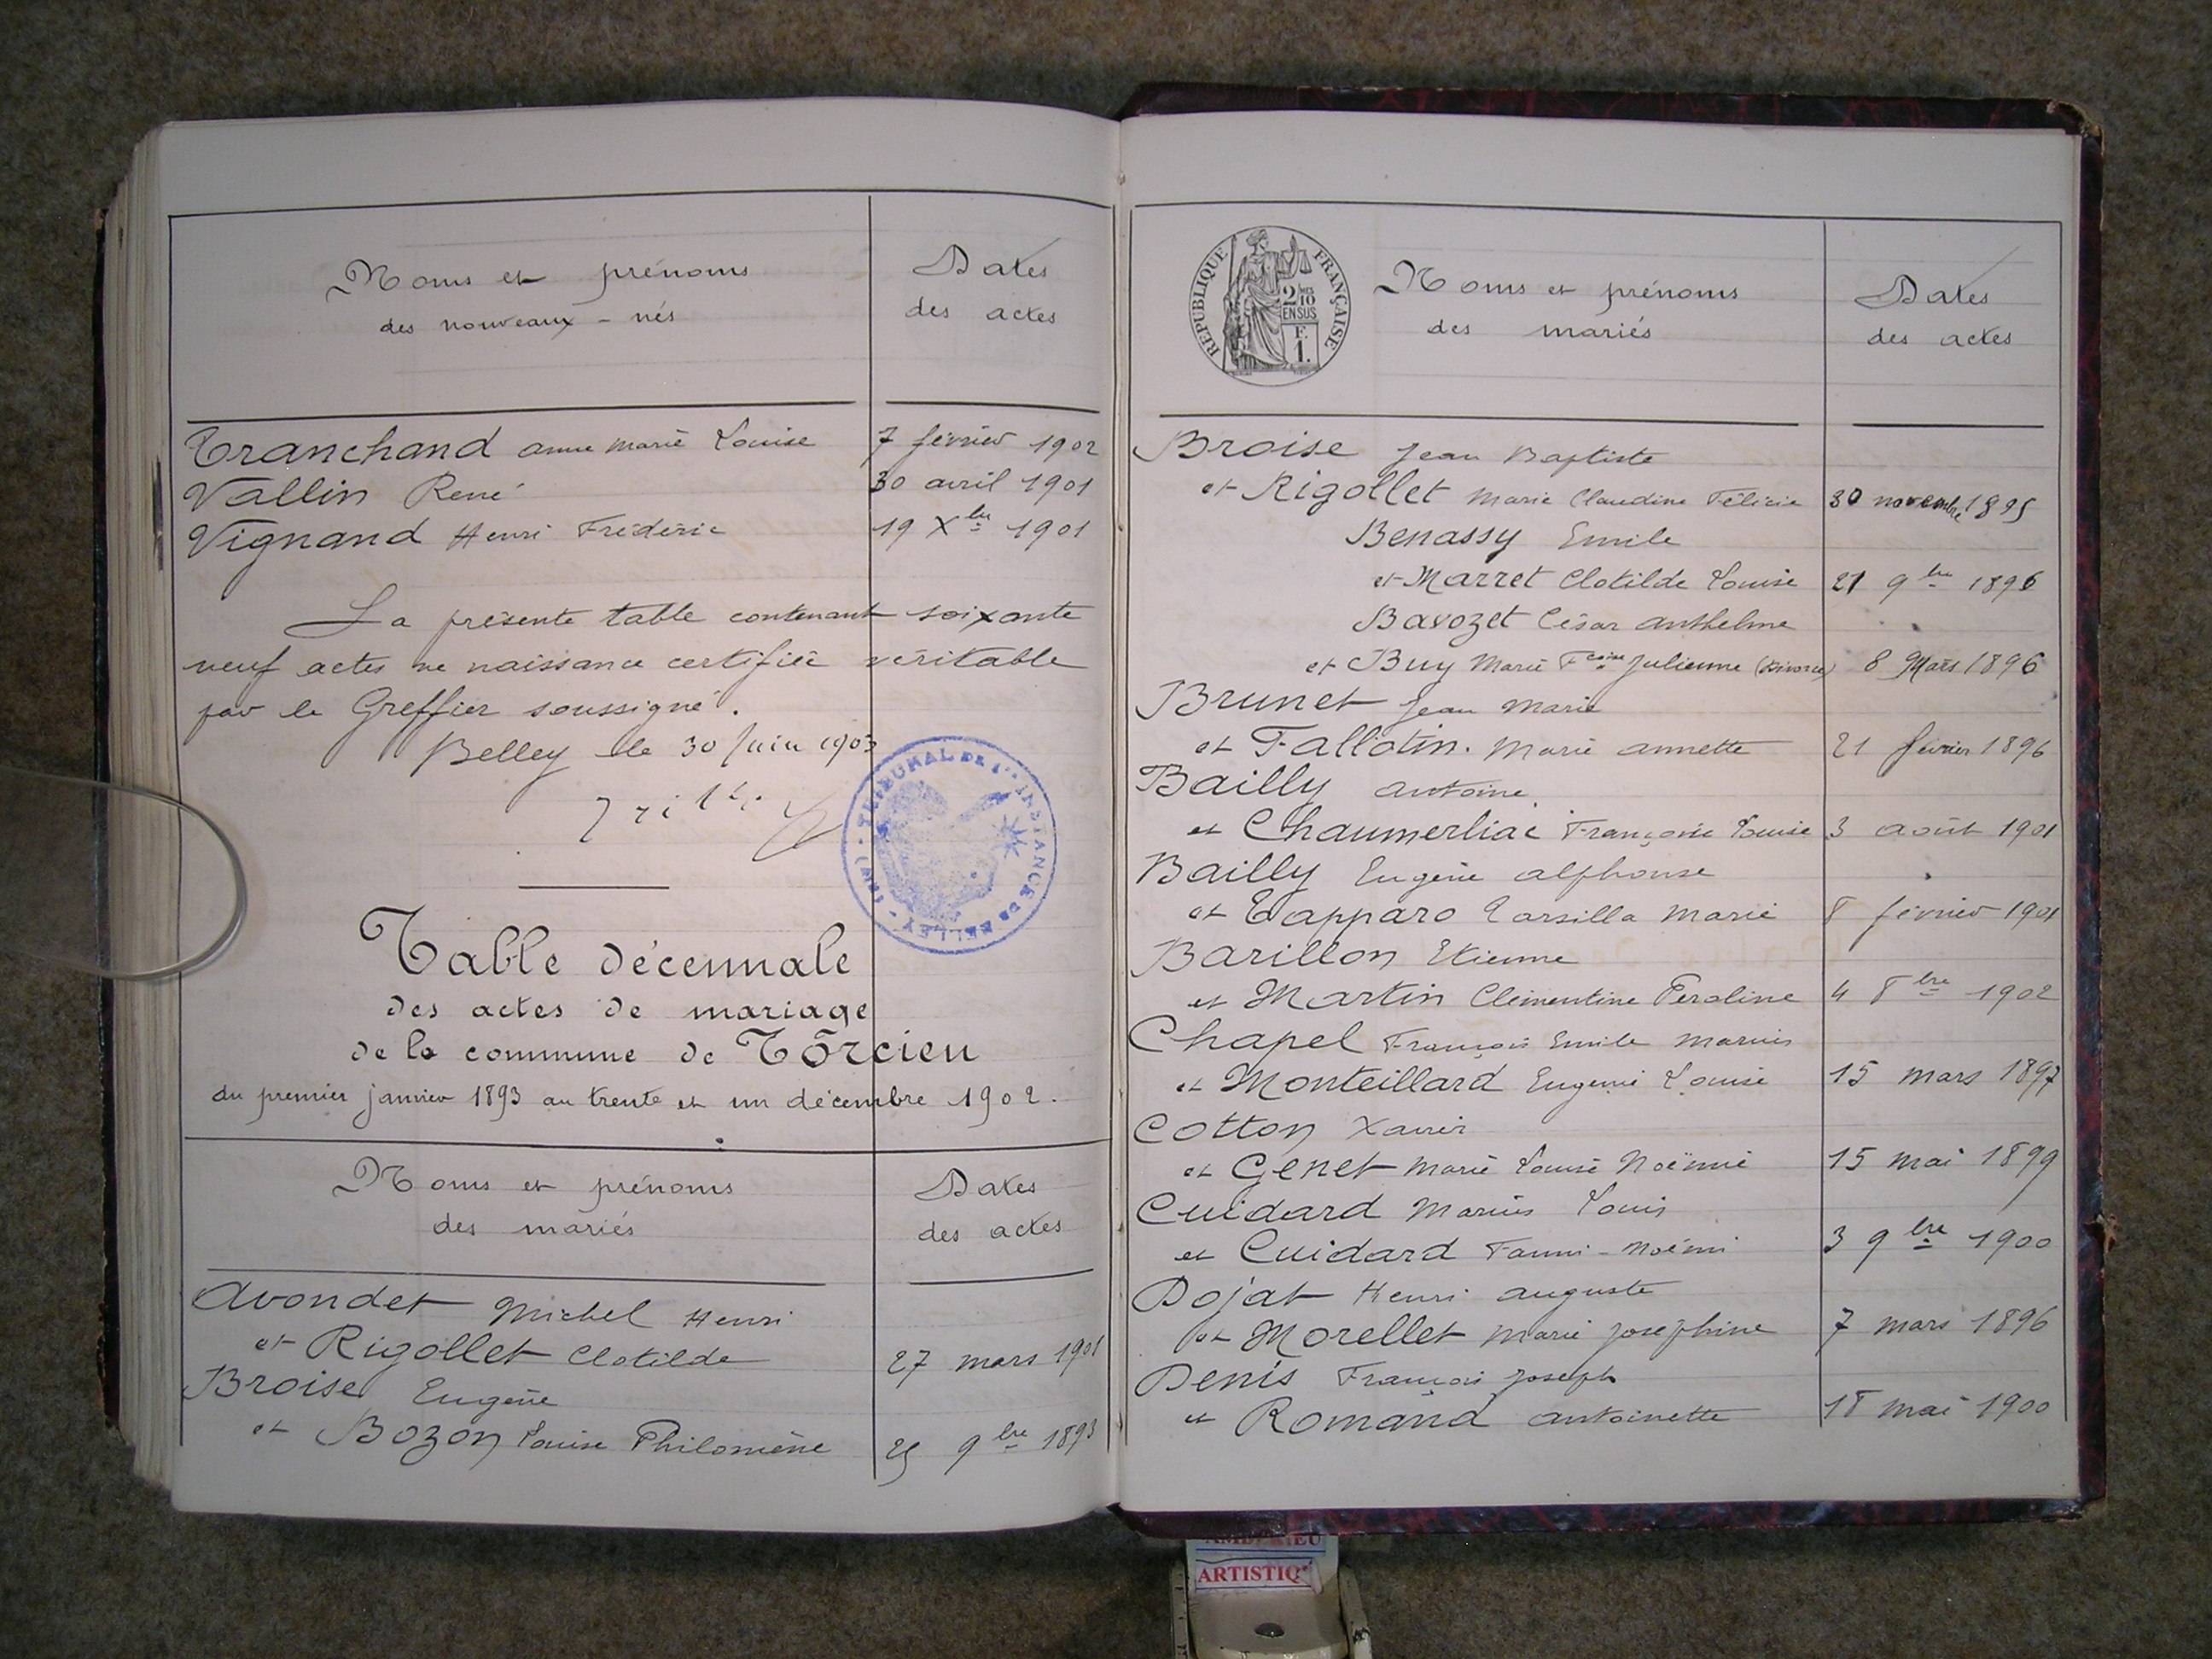 Noms et prénoms
des nouveaux-nés
Dates
des actes
Tranchand anne Marie Louise 7 février 1902
Vallin René 30 avril 1901
Vignand Henri Frédéric 19 Xbre 1901
La présente table contenant soixante
neuf actes de naissance certifiée véritable
par le Greffier soussigné.
Belley le 30 Juin 1903
TRIBUNAL DE 1re INSTANCE DE BELLEY
Table décennale
des actes de mariage
de la commune de Torcieu
du premier janvier 1893 au trente et un décembre 1902.
Noms et prénoms
des mariés
Dates
des actes
Avondet Michel Henri
et Rigollet Clotilde 27 mars 1901
Broise Eugène
et Bozon Louise Philomène 25 9bre 1893
RÉPUBLIQUE FRANÇAISE
2 10MES
EN SUS
F.
1.
Noms et prénoms
des mariés
Dates
des actes
Broise Jean Baptiste
et Rigollet Marie Claudine Félicie 30 novembre 1895
Benassy Emile
et Marret Clotilde Louise 21 9bre 1896
Bavozet César anthelme
et Buy Marie Fcoise Julienne (Divorce) 8 Mars 1896
Brunet Jean Marie
et Fallotin. Marie annette 21 février 1896
Bailly antoine
et Chaumerliac Françoise Louise 3 août 1901
Bailly Eugène alphonse
et Tapparo Tarsilla Marie 8 février 1901
Barillon Etienne
et Martin Clémentine Peroline 4 8bre 1902
Chapel François Emile Marius
et Monteillard Eugénie Louise 15 mars 1897
Cotton Xavier
et Genet Marie Louise Noëmie 15 mai 1899
Cuidard Marius Louis
et Cuidard Fanni-Noémi 3 9bre 1900
Dojat Henri auguste
et Morellet Marie Josephine 7 mars 1896
Denis François Joseph
et Romand antoinette 18 mai 1900
ARTISTIQ